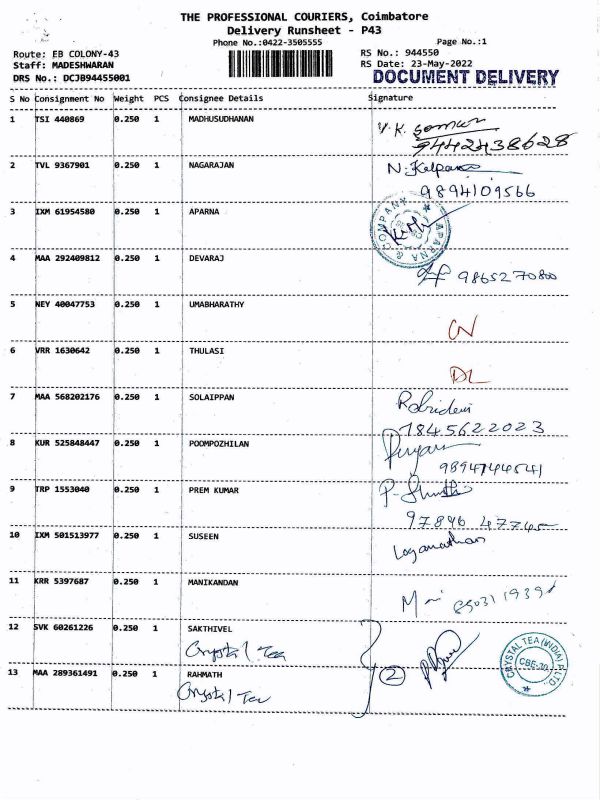 THE PROFESSIONAL COURIERS, Coimbatore
Delivery Runsheet - P43
Phone No.:0422-3505555
Page No.:1
Route: EB COLONY-43
RS No.: 944550
Staff: MADESHWARAN
RS Date: 23-May-2022
DRS No.: DCJB94455001
DOCUMENT DELIVERY
S No Consignment No Weight PCS Consignee Details Signature
1 TSI 440869 0.250 1 MADHUSUDHANAN
9442438628
2 TVL 9367901 0.250 1 NAGARAJAN N. Kalpana
9894109566
3 IXM 61954580 0.250 1 APARNA
APARNA & COMPANY
4 MAA 292409812 0.250 1 DEVARAJ
9865270800
5 NEY 40047753 0.250 1 UMABHARATHY
6 VRR 1630642 0.250 1 THULASI
DL
7 MAA 568202176 0.250 1 SOLAIPPAN
7845622023
8 KUR 525848447 0.250 1 POOMPOZHILAN
9 TRP 1553040 0.250 1 PREM KUMAR
10 IXM 501513977 0.250 1 SUSEEN
Loganathan
11 KRR 5397687 0.250 1 MANIKANDAN
12 SVK 60261226 0.250 1 SAKTHIVEL
Crystal Tea
CRYSTAL TEA (INDIA) P LTD
13 MAA 289361491 0.250 1 RAHMATH
2
Crystal Tea